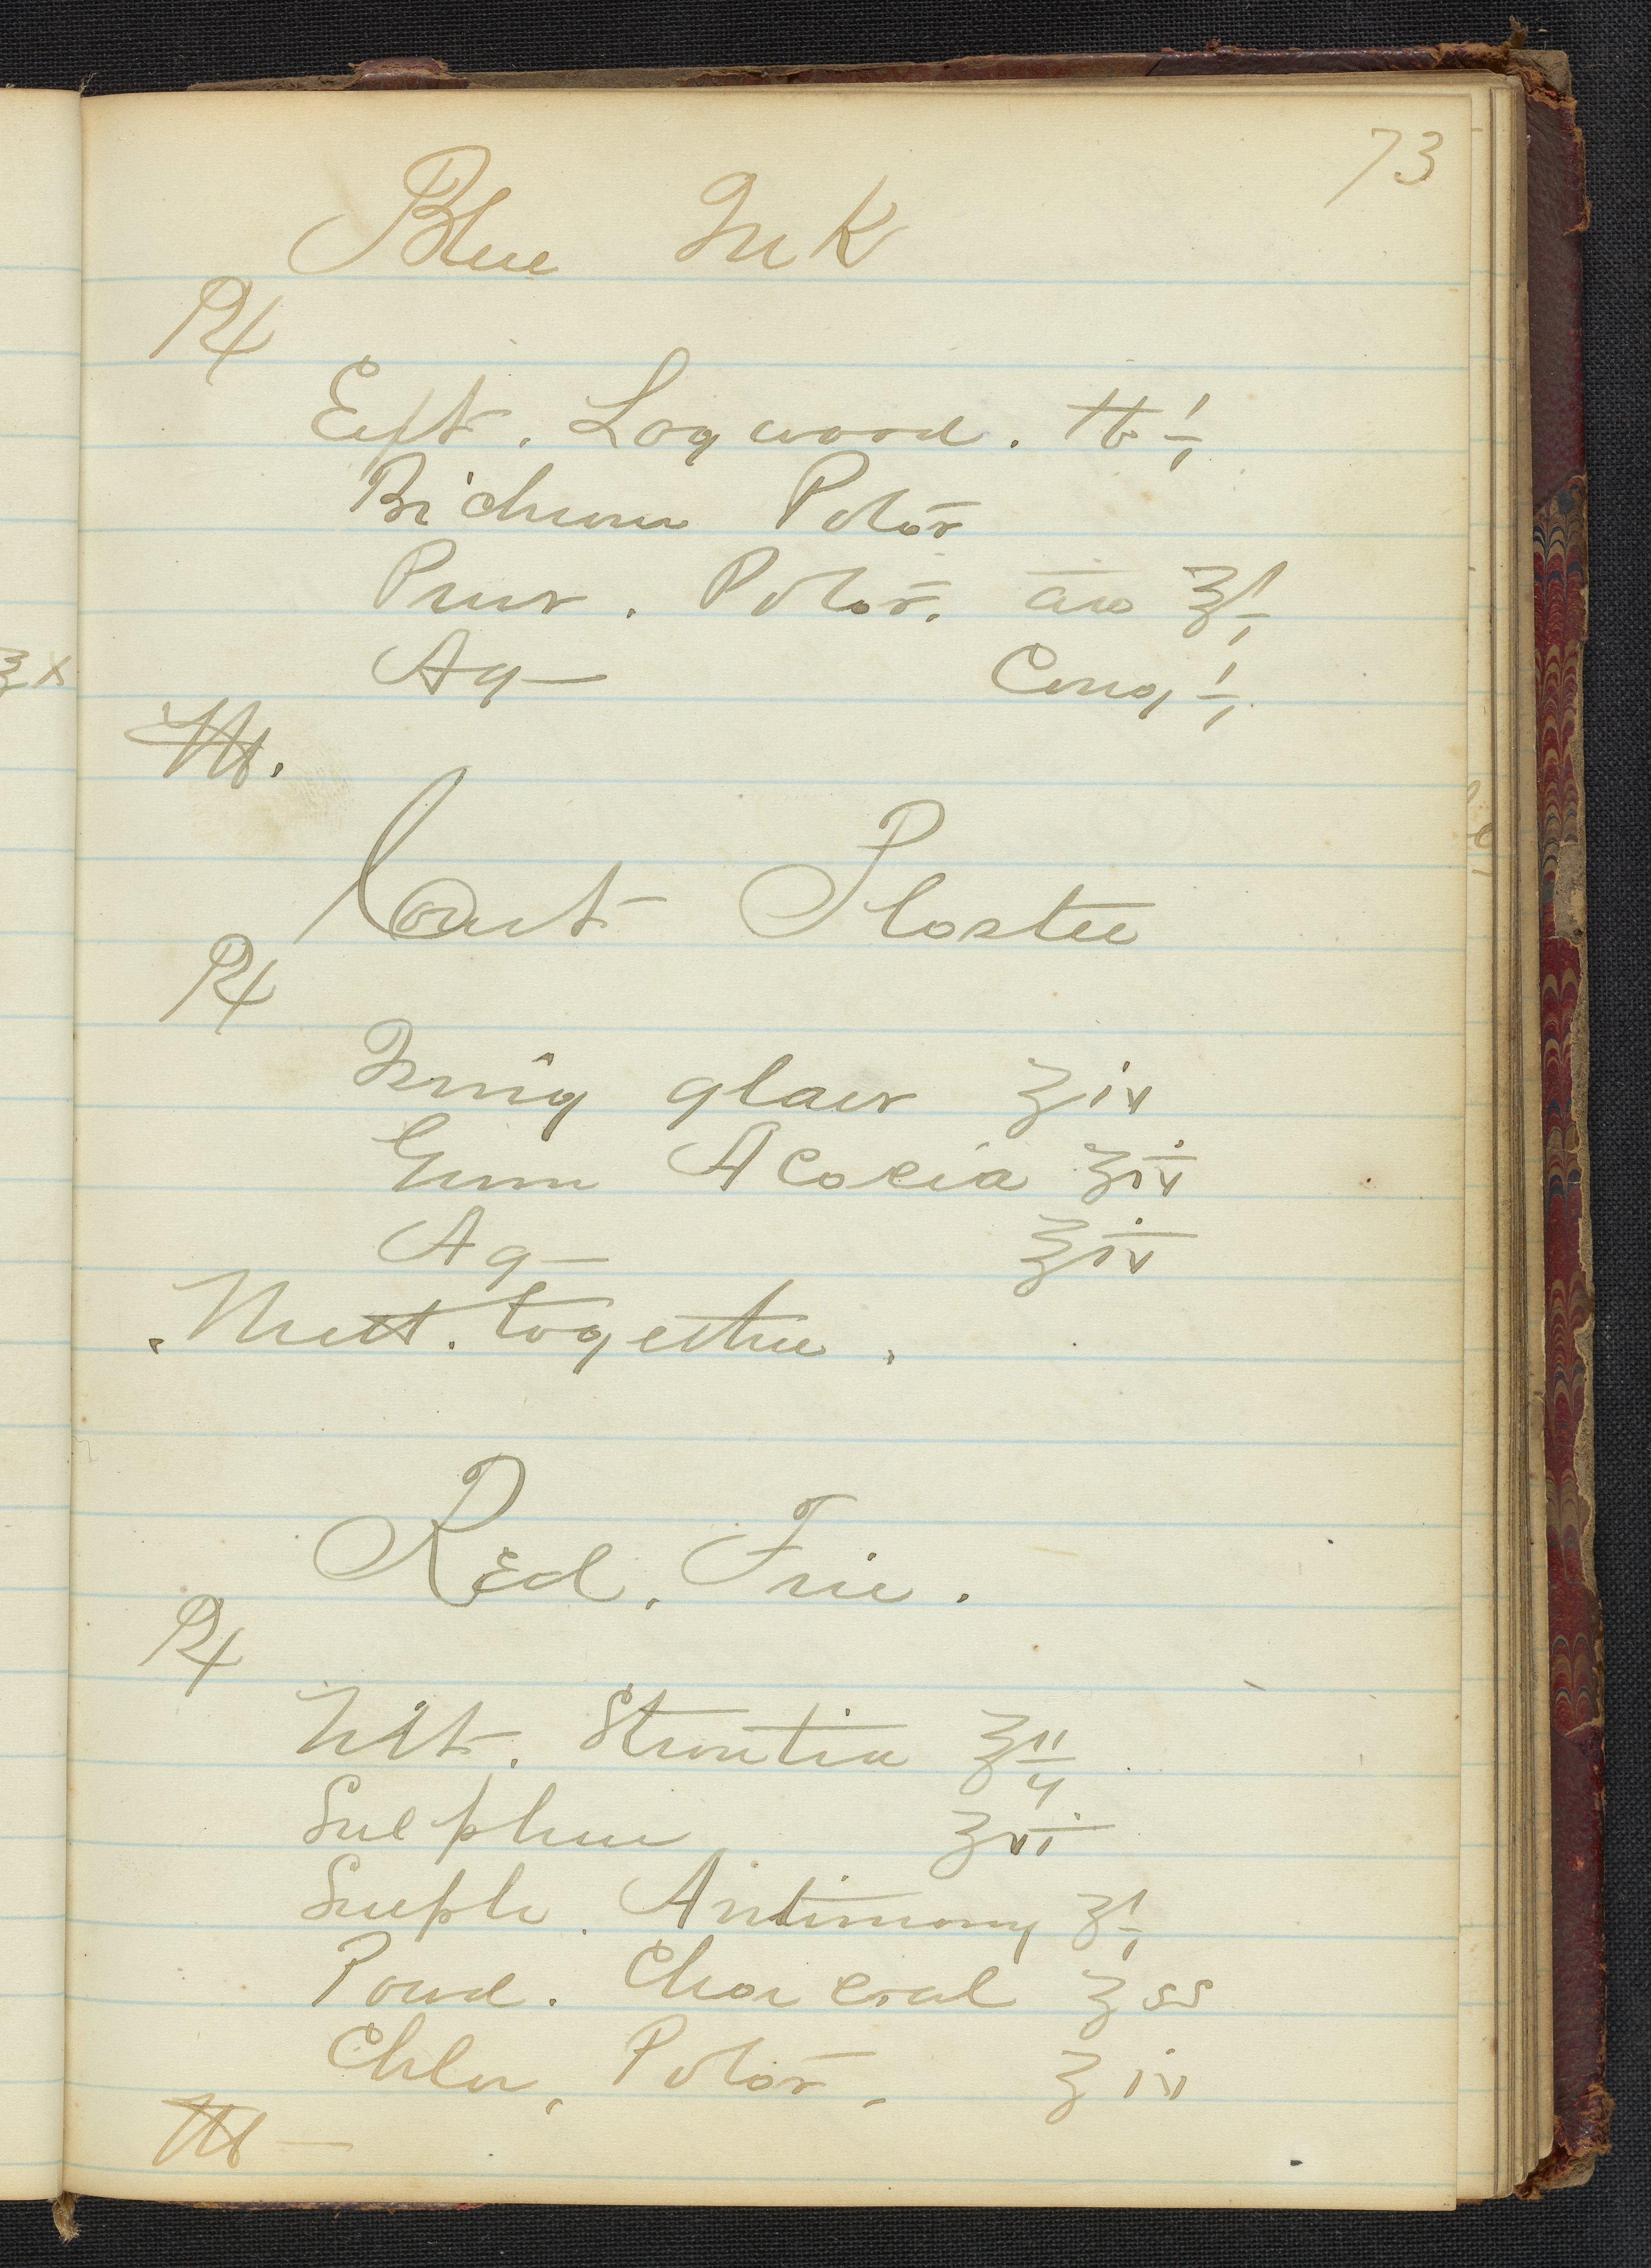 73
Blue Ink
℞
Ext. Logwood. ℔ i
Bichrom Potas
Pruss. Potas. aa ʒi
Aq Cong i
ʒx
M.
Court Plaster
℞
Ising glass ʒiv
Gum Acacia ʒiv
Aq ℥iv
Melt. together.
Red. Fire.
℞
Nit. Strontia ʒii
Sulphur ʒvi
Sulph. Antimony ʒi
Powd. Charcoal ʒss
Chlor. Potas. ʒiv
M